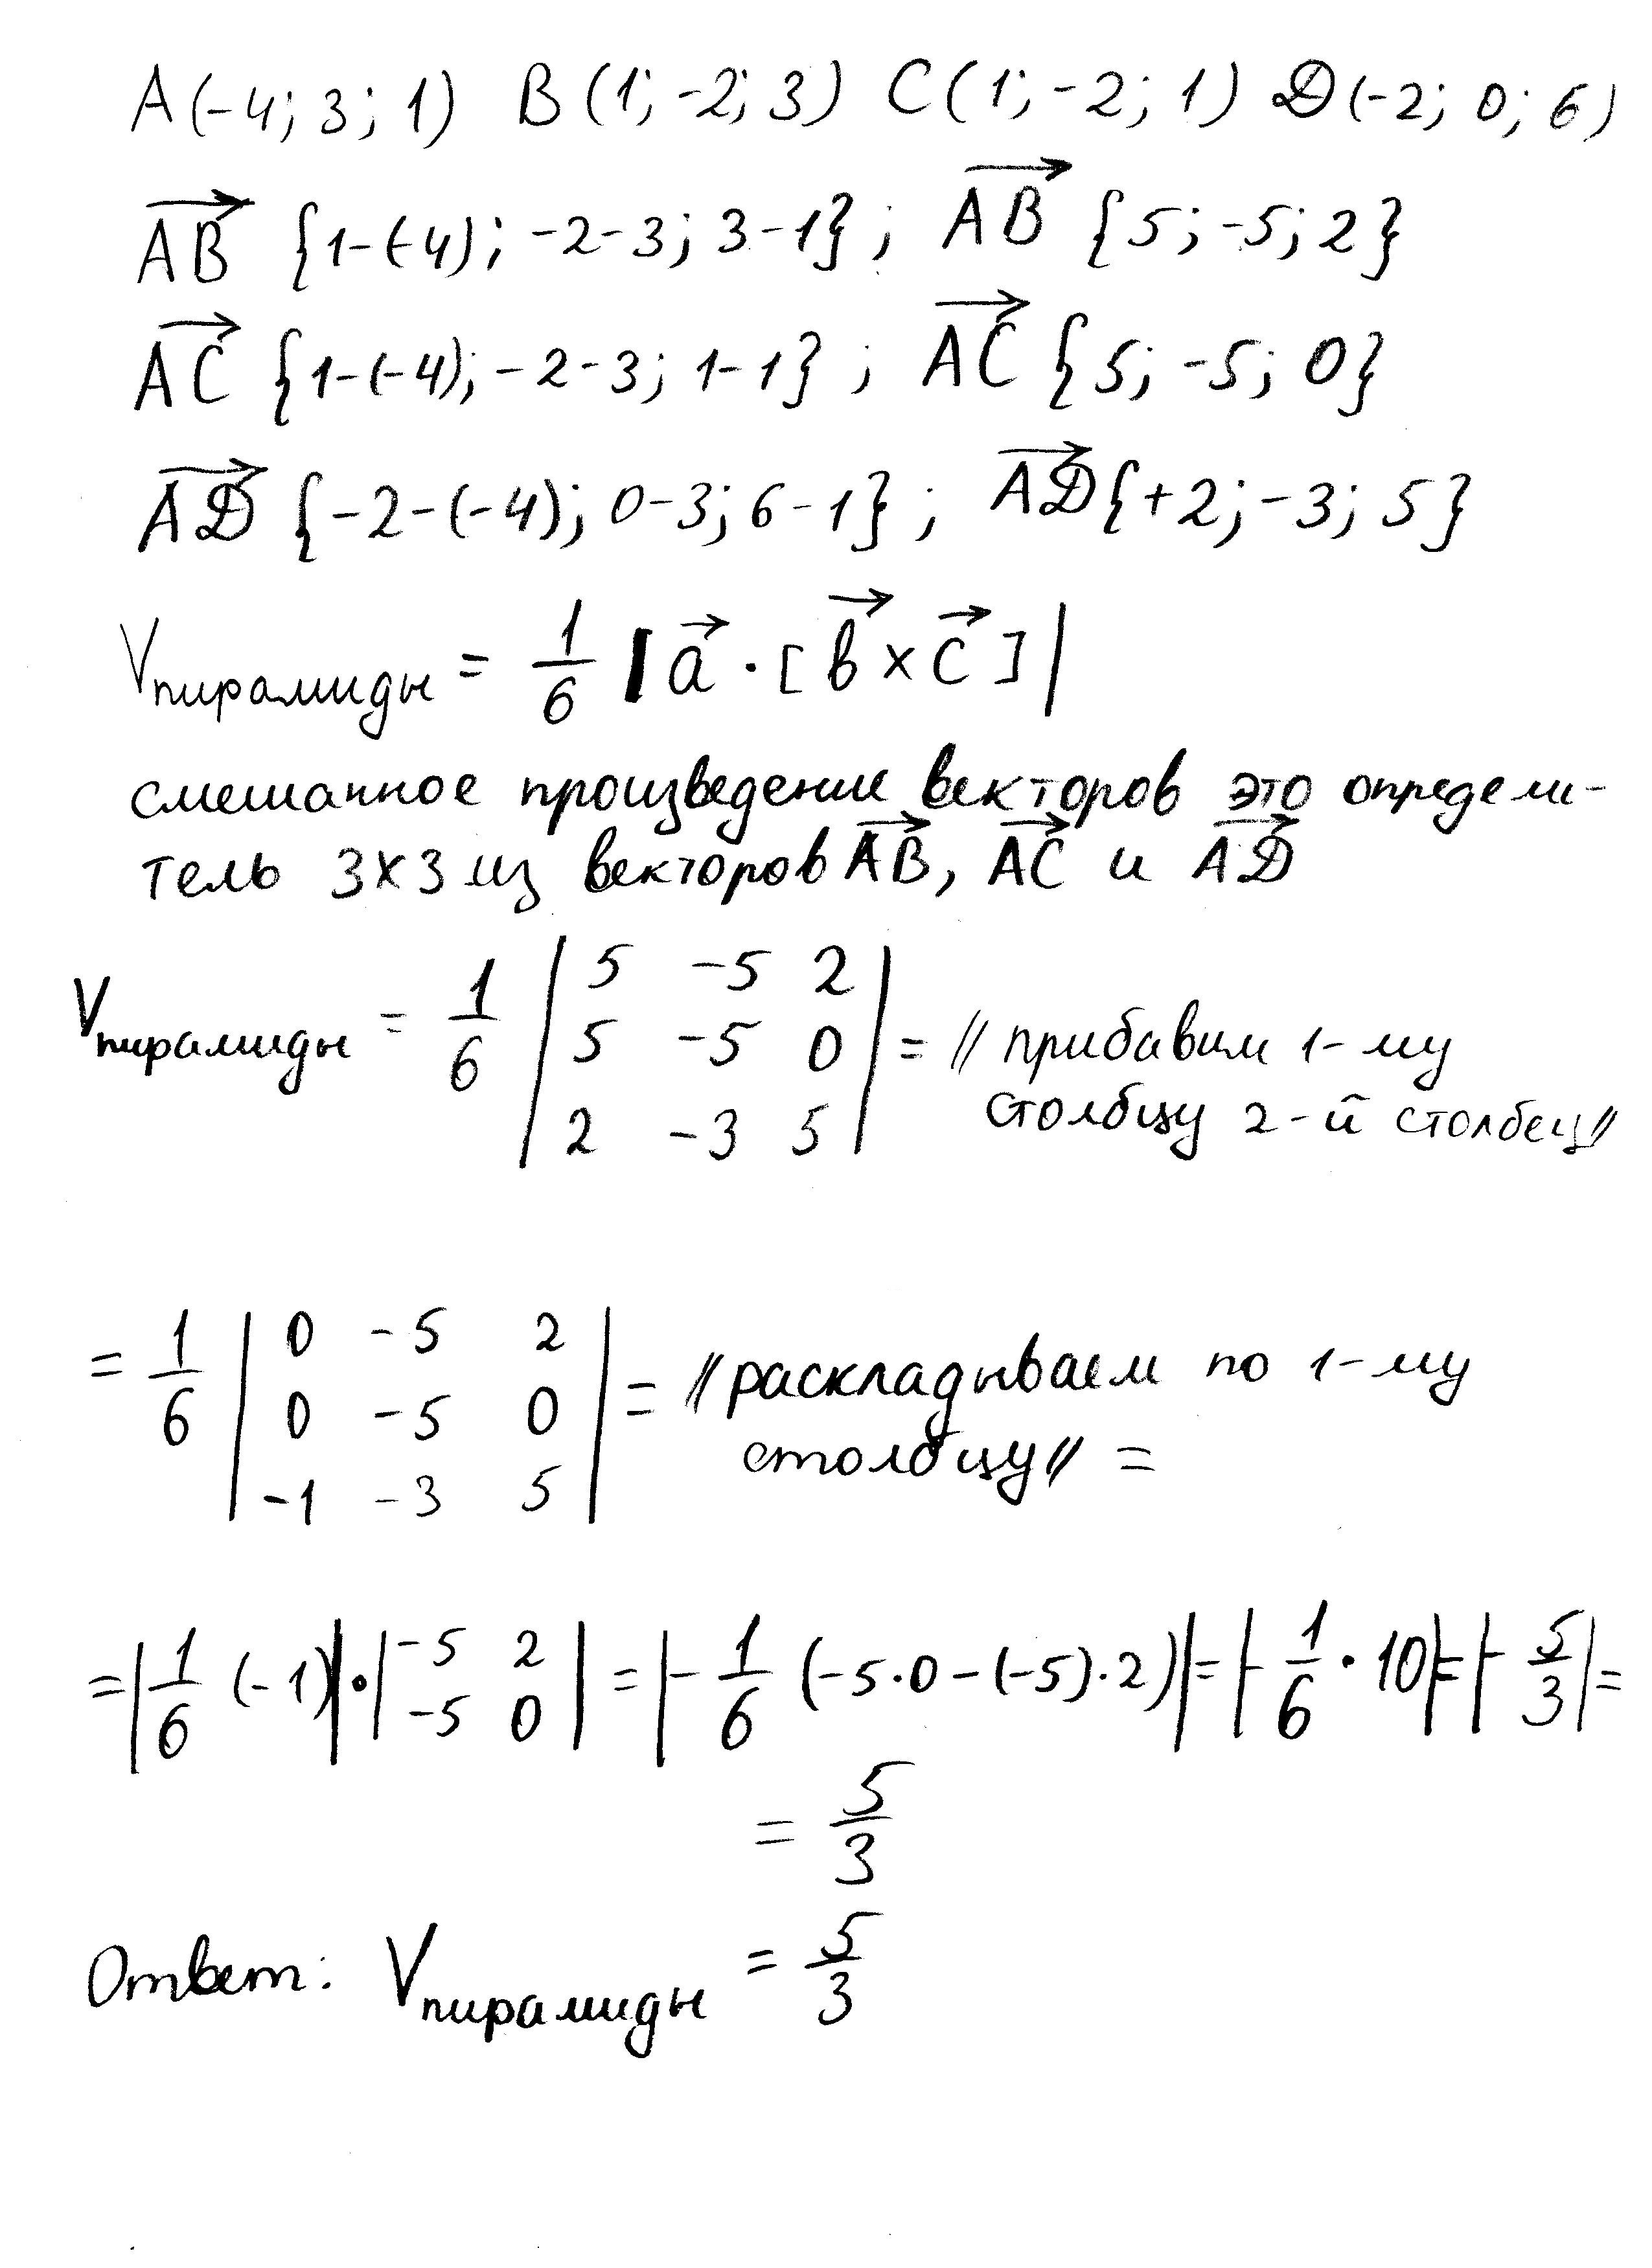 A(-4; 3; 1) B(1; -2; 3) C(1; -2; 1) D(-2; 0; 6)
AB {1-(-4); -2-3; 3-1}; AB {5; -5; 2}
AC {1-(-4); -2-3; 1-1}; AC {5; -5; 0}
AD {-2-(-4); 0-3; 6-1}; AD {+2; -3; 5}
Vпирамиды = 1/6 |a · [b × c]|
смешанное произведение векторов это определи-
тель 3×3 из векторов AB, AC и AD
Vпирамиды = 1/6 | 5 -5 2
5 -5 0
2 -3 5 | = // прибавим 1-му
столбцу 2-й столбец //
= 1/6 | 0 -5 2
0 -5 0
-1 -3 5 | = // раскладываем по 1-му
столбцу // =
= |1/6 (-1)| · | -5 2
-5 0 | = |-1/6 (-5·0-(-5)·2)| = |-1/6 · 10| = |-5/3| =
= 5/3
Ответ: Vпирамиды = 5/3